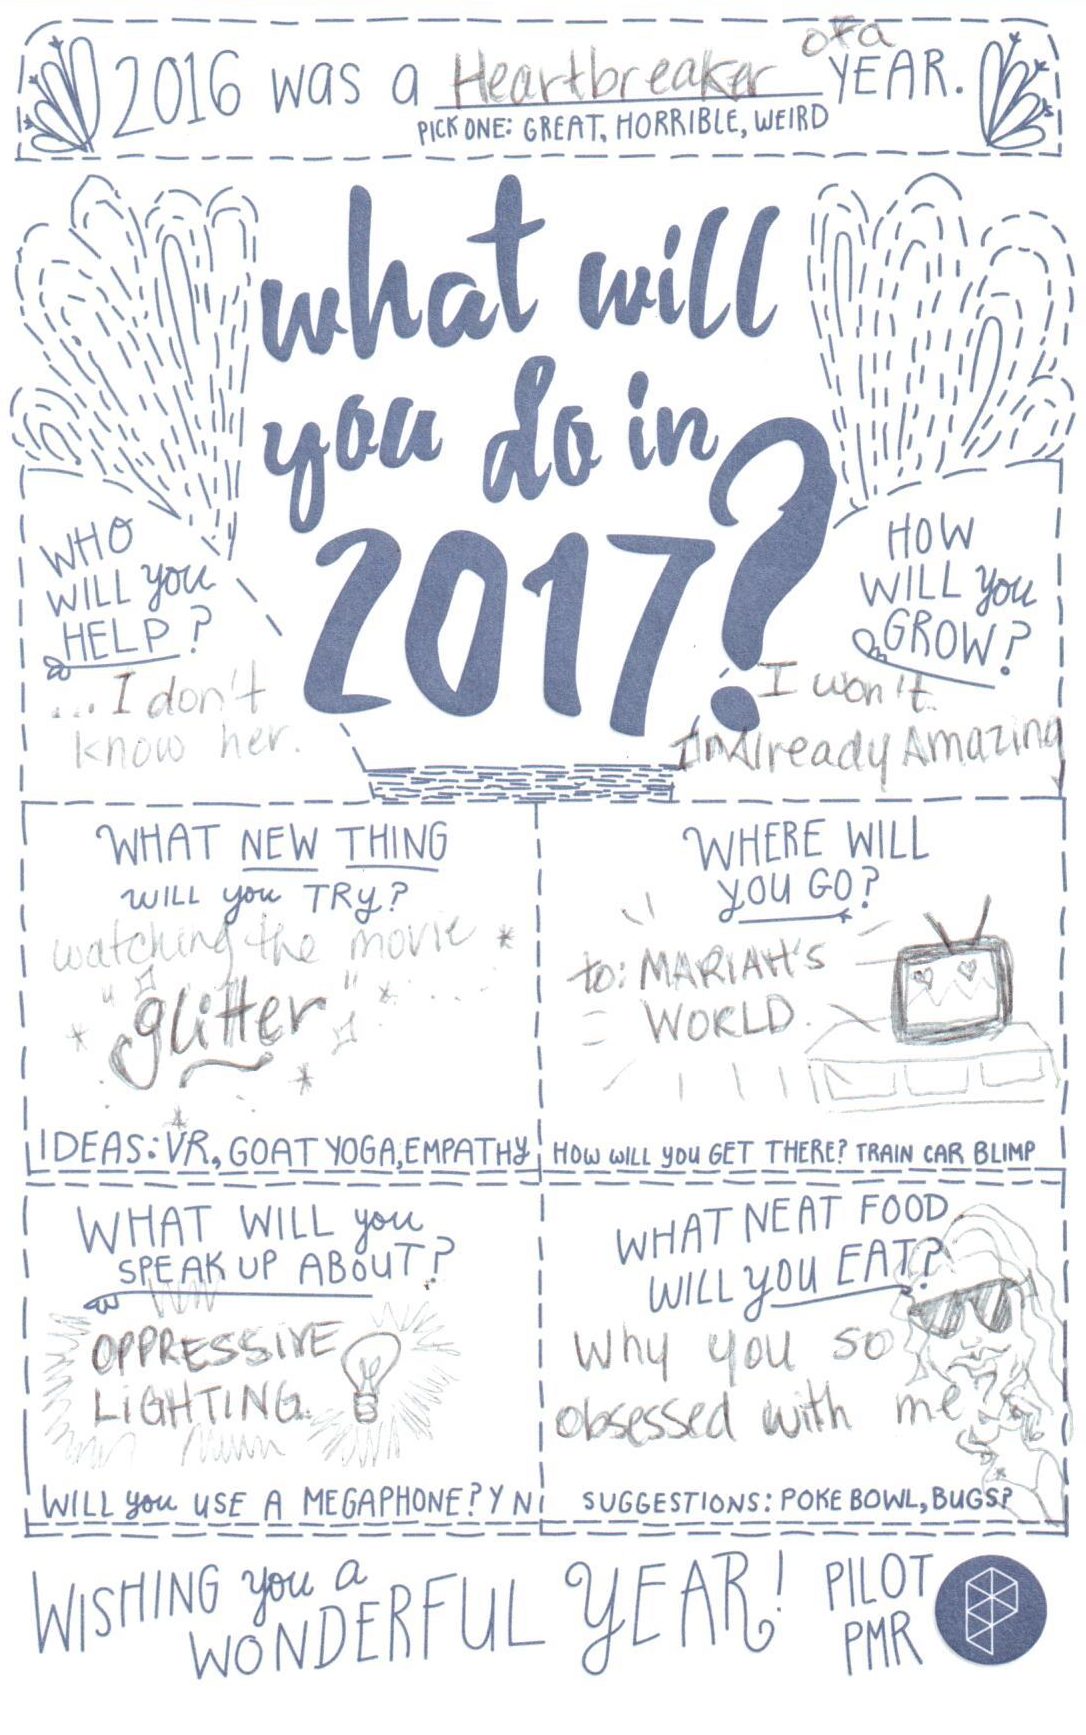 2016 was a Heartbreaker of a YEAR.
PICK ONE: GREAT, HORRIBLE, WEIRD
what will
you do in
2017?
WHO
WILL you
HELP?
...I don't
know her.
HOW
WILL you
GROW?
I won't.
Im Already Amazing
WHAT NEW THING
WILL you TRY?
watching the movie
"glitter"
IDEAS: VR, GOAT YOGA, EMPATHY
WHERE WILL
YOU GO?
to: MARIAH'S
WORLD.
HOW WILL you GET THERE? TRAIN CAR BLIMP
WHAT WILL you
SPEAK UP ABOUT?
OPPRESSIVE
LIGHTING.
WILL you USE A MEGAPHONE? Y N
WHAT NEAT FOOD
WILL YOU EAT?
Why you so
obsessed with me
SUGGESTIONS: POKE BOWL, BUGS?
WISHING you a
WONDERFUL YEAR!
PILOT
PMR